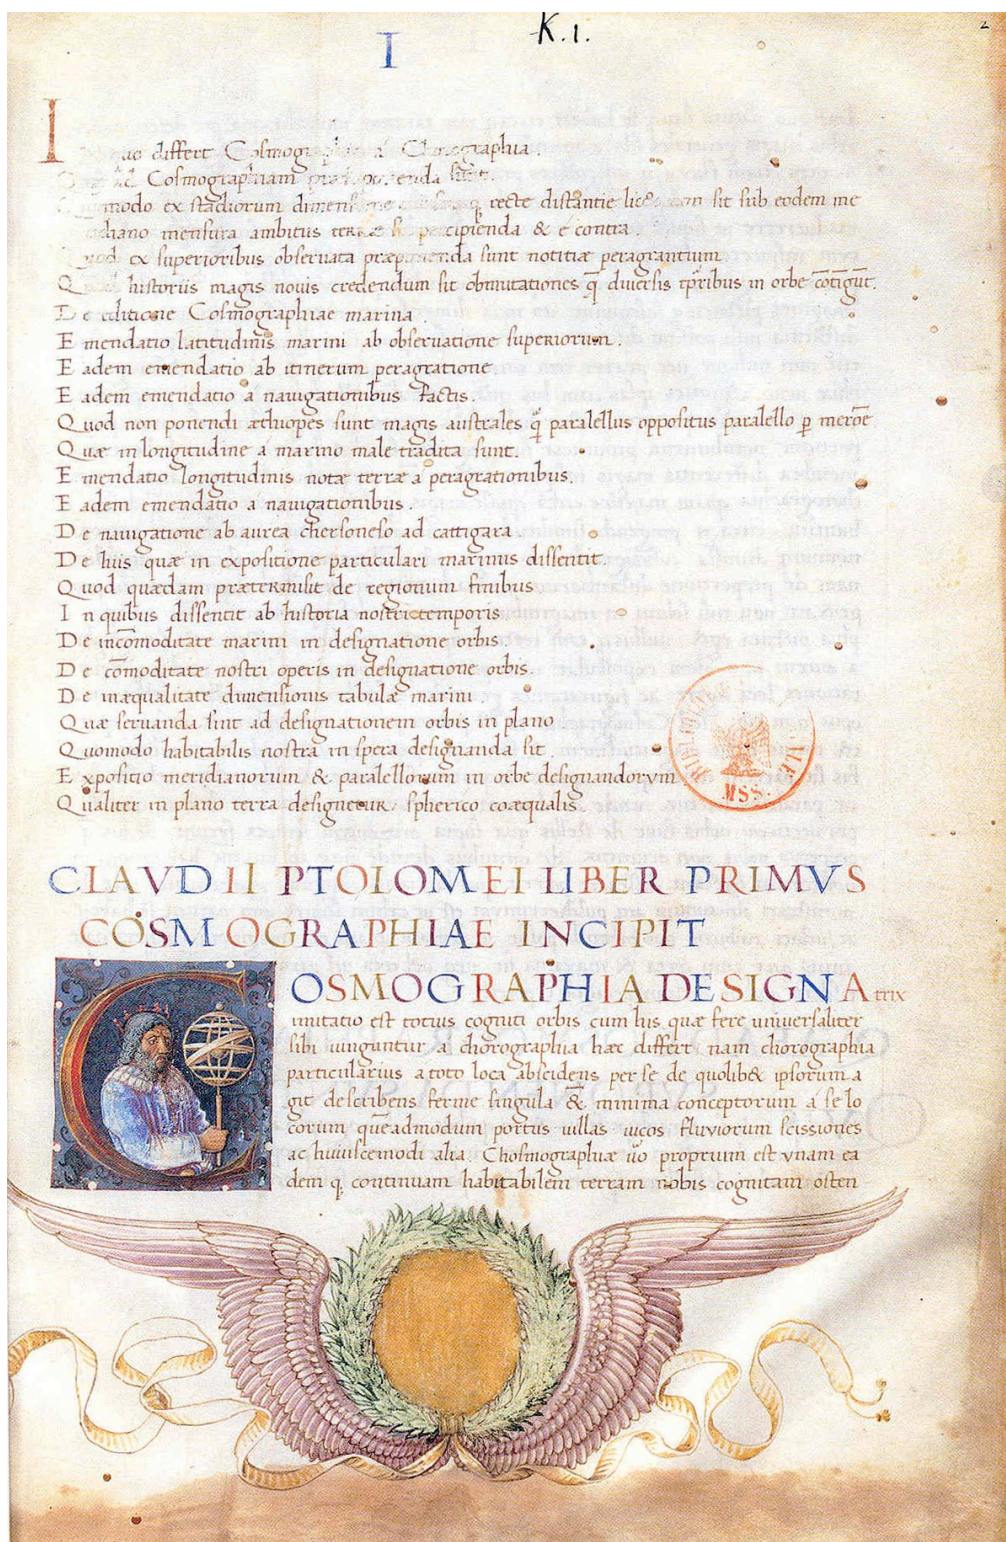 K.1.
2
I
I
differt Cosmographia a Chorographia.
Cosmographiam
modo ex stadiorum recte distantie licet non sit sub eodem me
ridiano mensura ambitus terræ percipienda & e contra
ex superioribus observata præponenda sunt notitiæ peragrantium
Q historiis magis novis credendum sit ob mutationes q̄ diversis tp̄ribus in orbe cōtigūt.
De editione Cosmographiae marina.
Emendatio latitudinis marini ab observatione superiorum.
Eadem emendatio ab itinerum peragratione
Eadem emendatio a navigationibus factis.
Quod non ponendi æthiopes sunt magis australes q̄ parallellus oppositus paralello p̱ meroē
Quæ in longitudine a marino male tradita sunt.
Emendatio longitudinis notæ terræ a peragrationibus.
Eadem emendatio a navigationibus.
De navigatione ab aurea chersoneso ad cattigara
De hiis quæ in expositione particulari marinus dissentit.
Quod quædam prætermisit de regionum finibus
In quibus dissentit ab historia nostri temporis
De incōmoditate marini in designatione orbis.
De cōmoditate nostri operis in designatione orbis.
De inæqualitate dimensionis tabulæ marini.
Quæ servanda sint ad designationem orbis in plano
Quomodo habitabilis nostra in spera designanda sit
Expositio meridianorum & paralellorum in orbe designandorum
Qualiter in plano terra designetur spherico coæqualis
MSS.
CLAVDII PTOLOMEI LIBER PRIMVS
COSMOGRAPHIAE INCIPIT
COSMOGRAPHIA DESIGNAtrix
imitatio est totius cogniti orbis cum his quæ fere universaliter
sibi iunguntur a chorographia hæc differt nam chorographia
particularius a toto loca abscidens per se de quolib& ipsorum a
git describens ferme singula & minima conceptorum a se lo
corum quēadmodum portus villas vicos fluviorum scissiones
ac huiuscemodi alia. Chosmographiæ ūo proprium est vnam ea
dem q. continuam habitabilem terram nobis cognitam osten